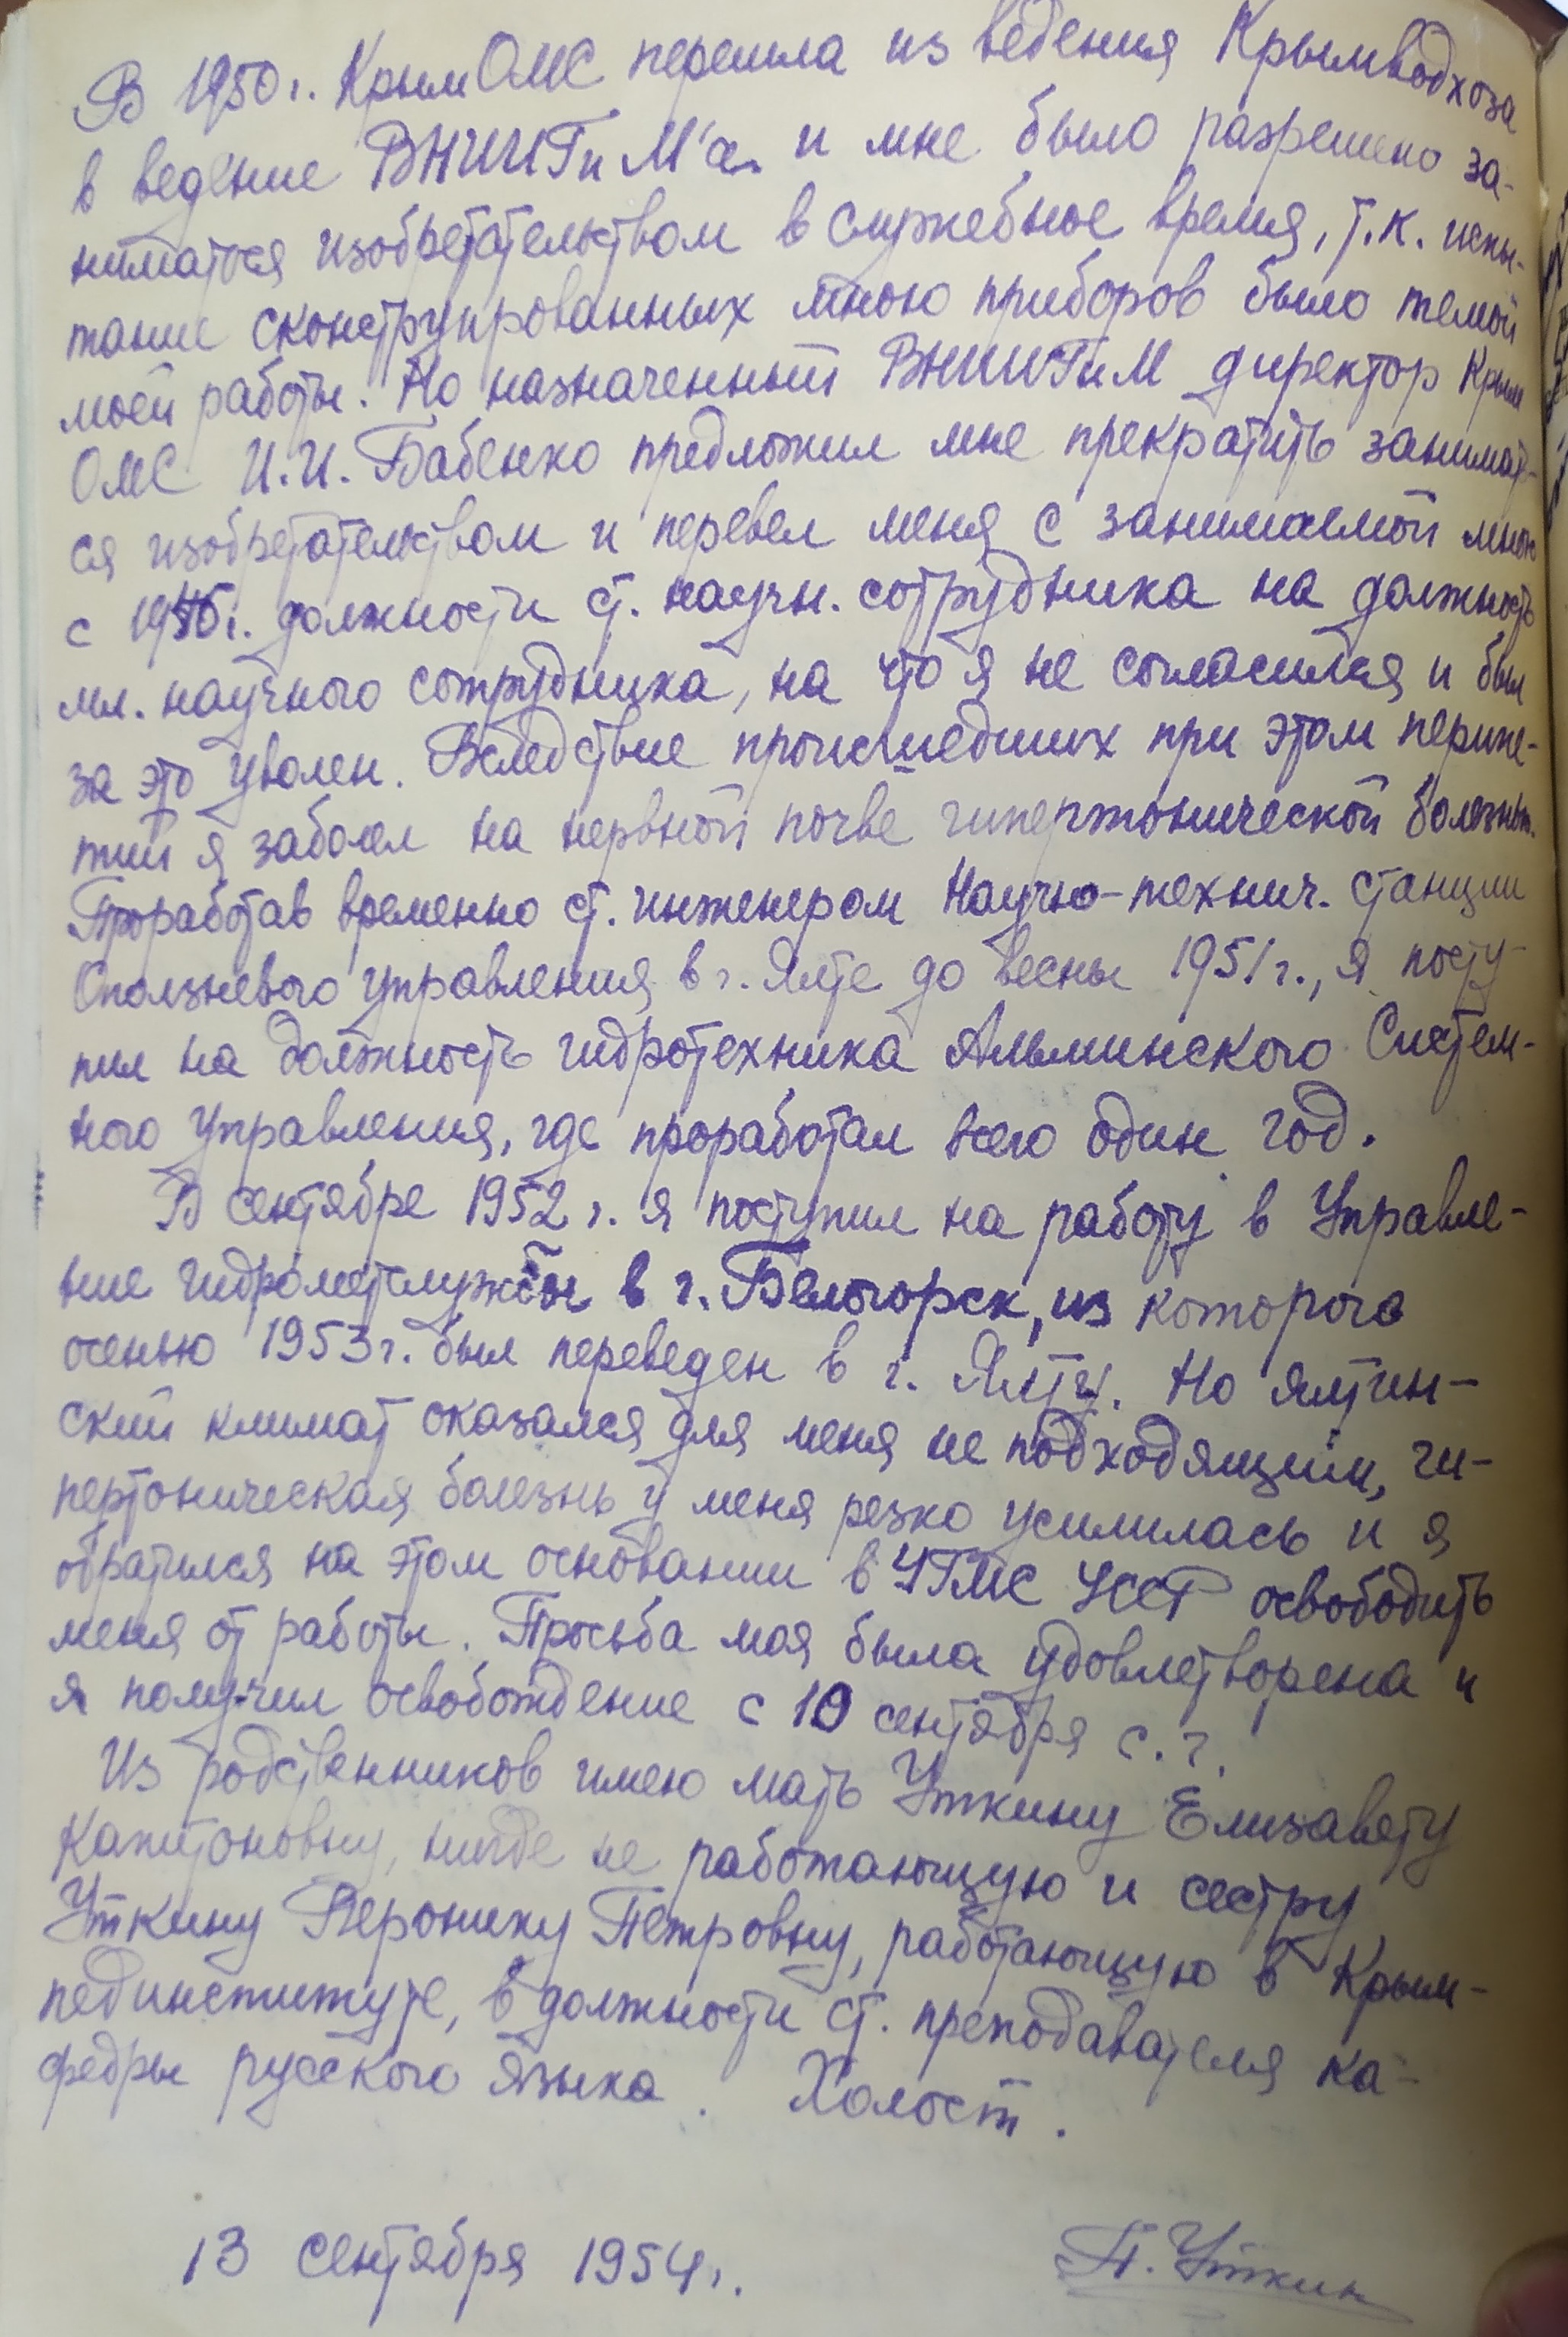 В 1950 г. КрымОМС перешла из ведения Крымводхоза
в ведение ВНИИГиМ'а и мне было разрешено за-
ниматься изобретательством в служебное время, т.к. испы-
тание сконструированных мною приборов было темой
моей работы. Но назначенный ВНИИГиМ директор Крым
ОМС И.И. Бабенко предложил мне прекратить занимать-
ся изобретательством и перевел меня с занимаемой мною
с 1945 г. должности ст. научн. сотрудника на должность
мл. научного сотрудника, на что я не согласился и был
за это уволен. Вследствие происшедших при этом перипе-
тий я заболел на нервной почве гипертонической болезнью.
Проработав временно ст. инженером Научно-технич. станции
Оползневого управления в г. Ялте до весны 1951 г., я посту-
пил на должность гидротехника Альминского Систем-
ного Управления, где проработал всего один год.
В сентябре 1952 г. я поступил на работу в Управле-
ние Гидрометслужбы в г. Белогорск, из которого
осенью 1953 г. был переведен в г. Ялту. Но ялтин-
ский климат оказался для меня не подходящим, ги-
пертоническая болезнь у меня резко усилилась и я
обратился на этом основании в УГМС УССР освободить
меня от работы. Просьба моя была удовлетворена и
я получил освобождение с 10 сентября с. г.
Из родственников имею мать Уткину Елизавету
Капитоновну, нигде не работающую и сестру
Уткину Веронику Петровну, работающую в Крым-
пединституте, в должности ст. преподавателя ка-
федры русского языка. Холост.
13 сентября 1954 г.
П. Уткин